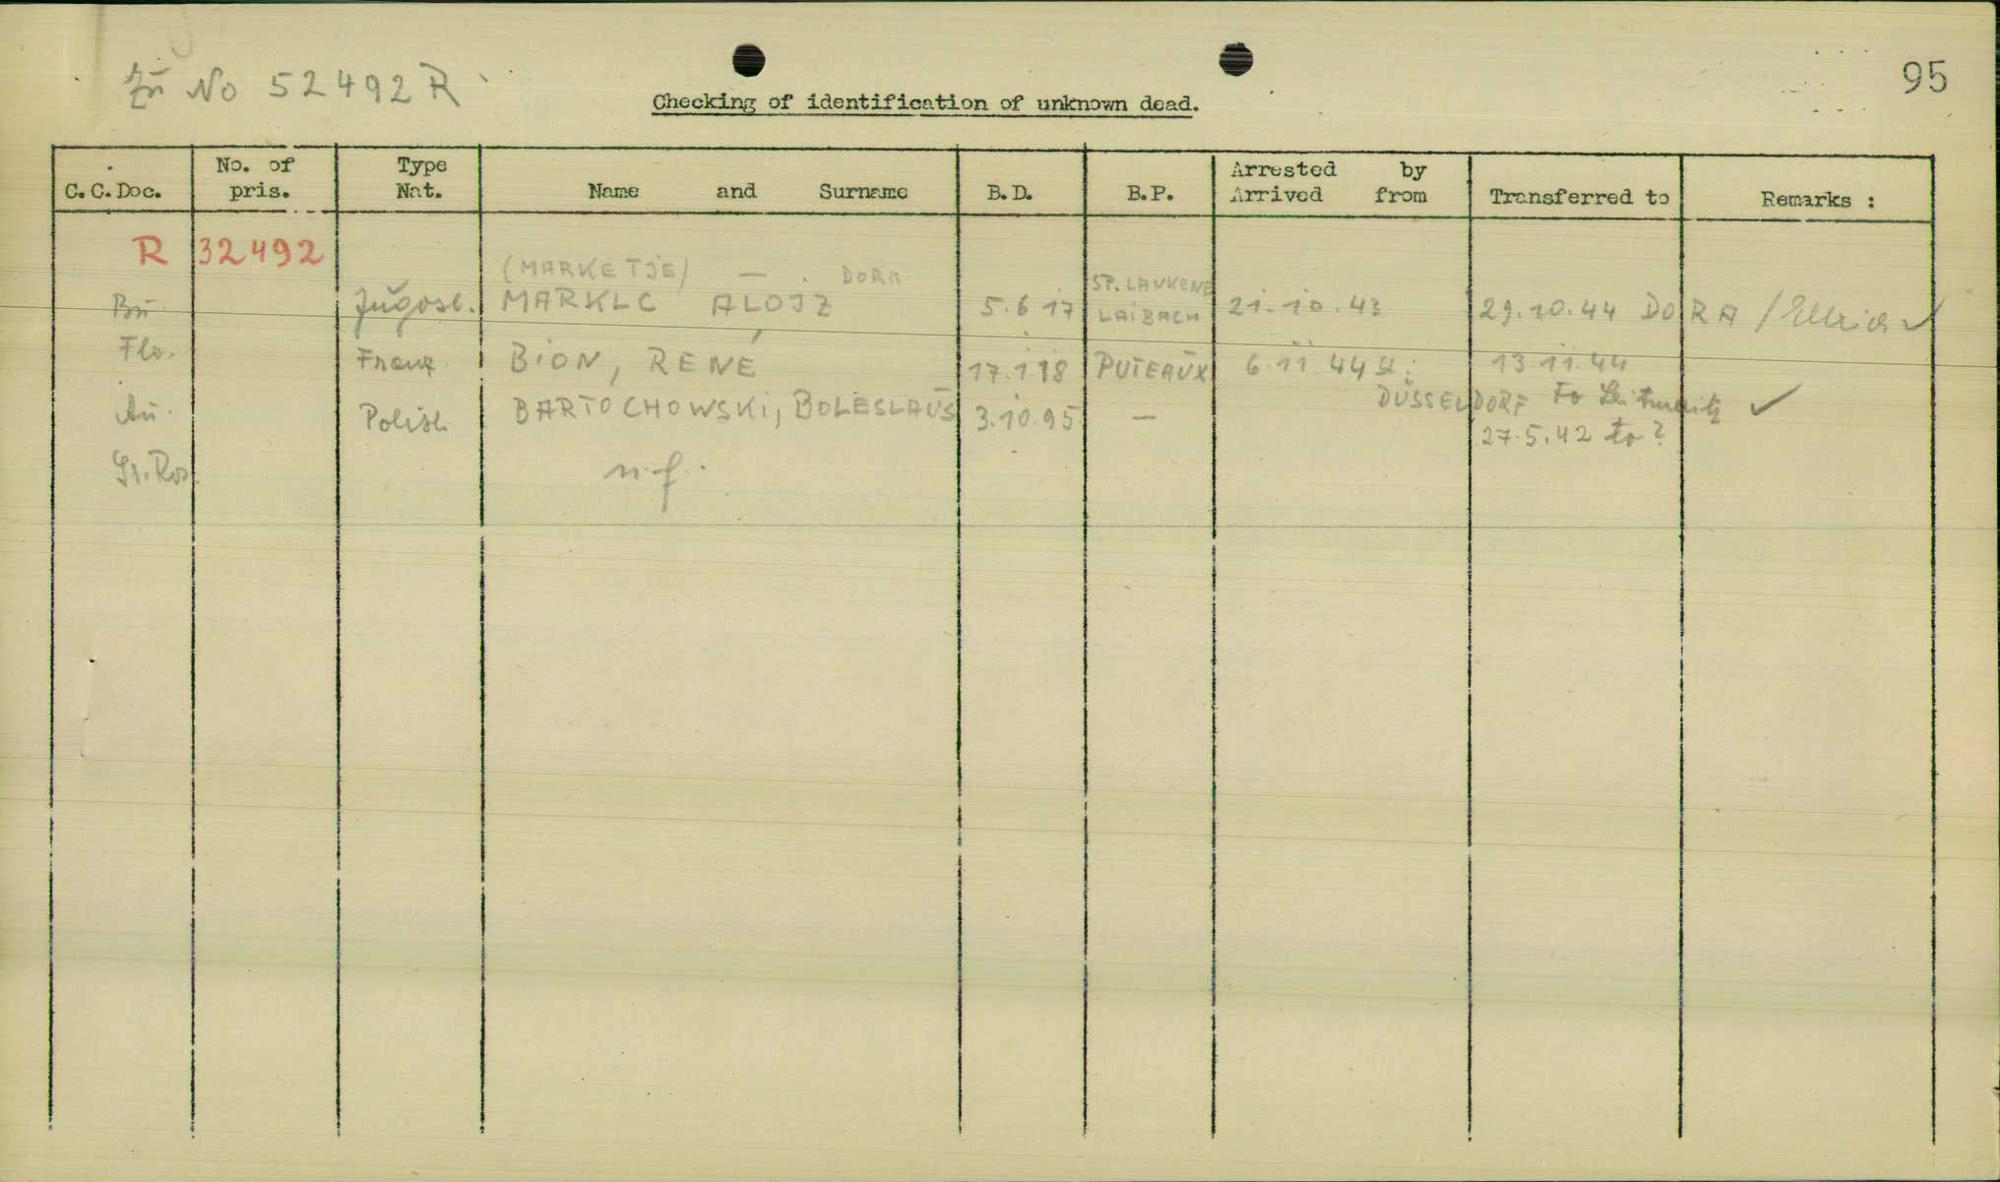 Zu No 52492 R
95
Checking of identification of unknown dead.
C.C.Doc. No. of pris. Type Nat. Name and Surname B.D. B.P. Arrested by Arrived from Transferred to Remarks :
R 32492
(MARKETJE) — . DORA
Bu. Jugosl. MARKLC ALOJZ 5.6 17 LAIBACH 21.10.43 29.10.44 DORA / Ellrich ✓
Flo. Franz. BION, RENÉ 17.1.18 PUTEAUX 6.11.44 13.11.44
DÜSSELDORF to Leitmeritz ✓
Au. Polish BARTOCHOWSKI, BOLESLAUS 3.10.95 — 27.5.42 to ?
Gr. Ros. n.f.